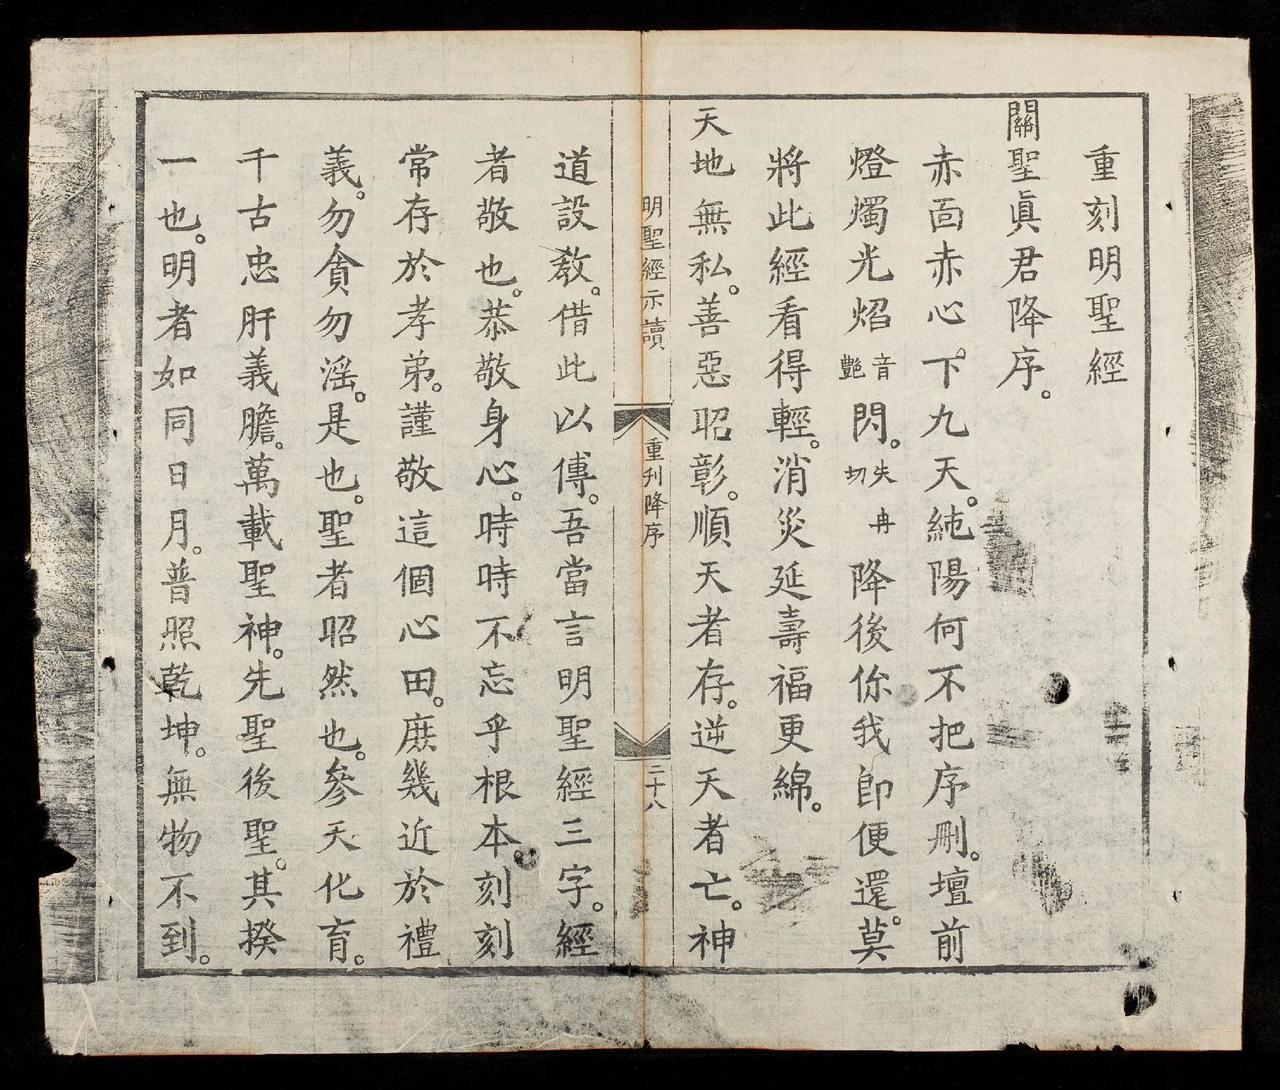 重刻明聖經
關聖眞君降序。
赤面赤心。下九天。純陽何不把序刪。壇前
燈燭光焰音艷閃。失冉切降後你我卽便還。莫
將此經看得輕。消災延壽福更綿。
天地無私。善惡昭彰。順天者存。逆天者亡。神
明聖經示讀 重刊降序 二十八
道設教。借此以傳。吾當言明聖經三字。經
者敬也。恭敬身心。時時不忘乎根本。刻刻
常存於孝弟。謹敬這個心田。庶幾近於禮
義。勿貪勿淫。是也。聖者昭然也。參天化育。
千古忠肝義膽。萬載聖神。先聖後聖。其揆
一也。明者如同日月。普照乾坤。無物不到。